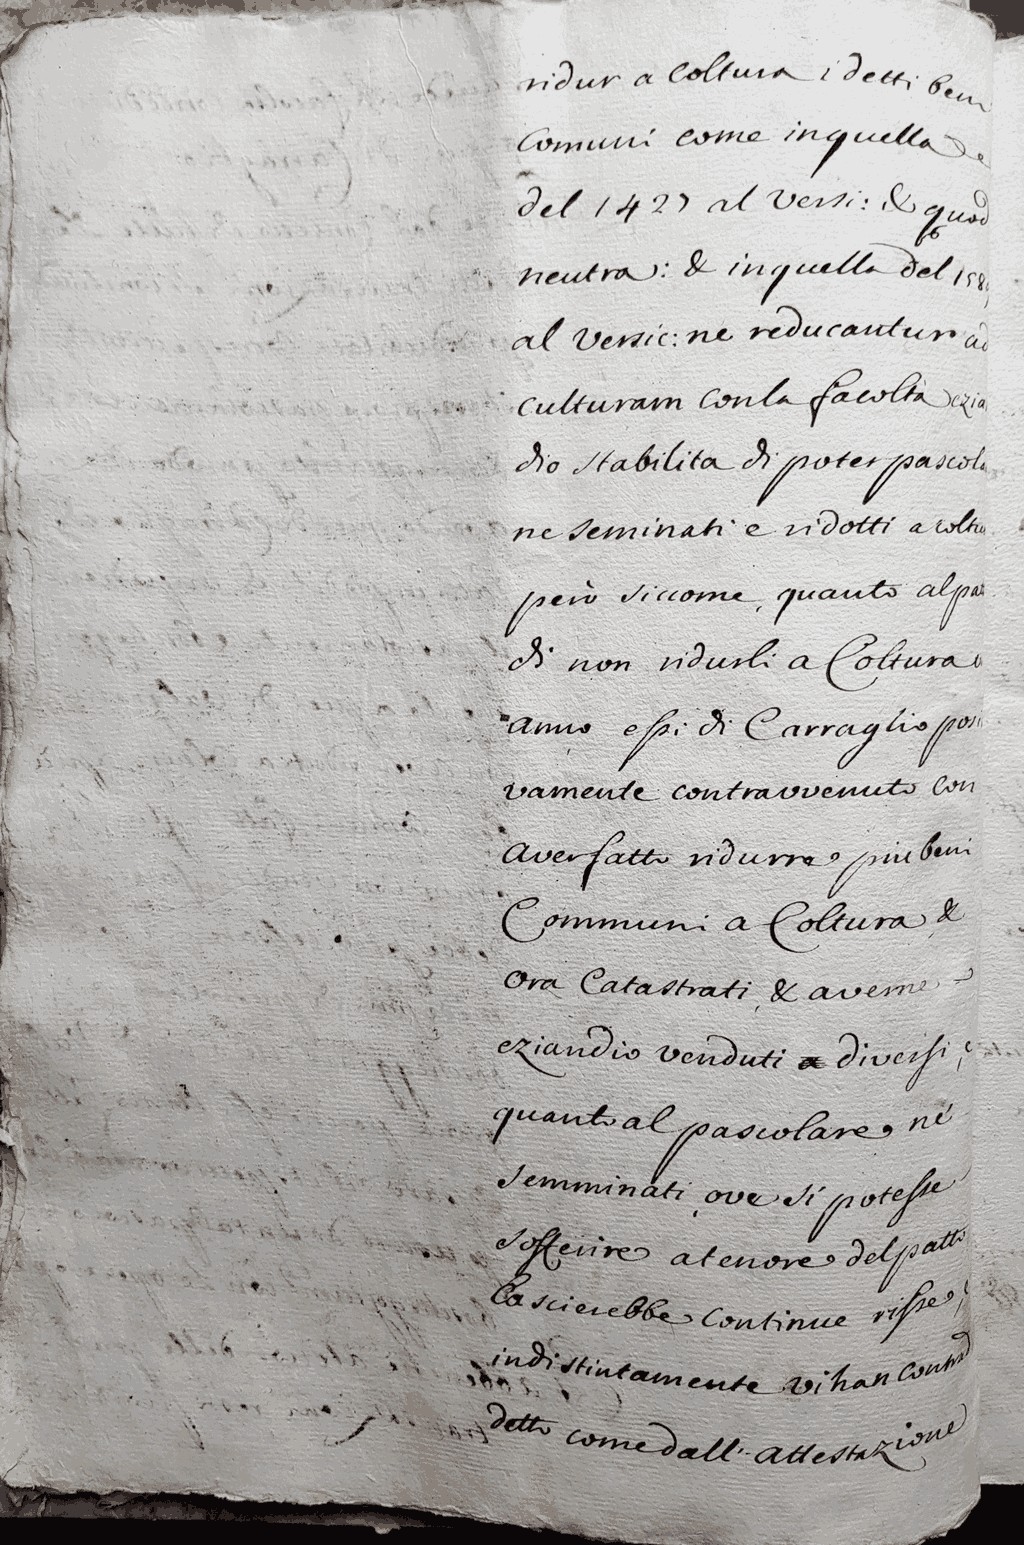 ridur a Coltura i detti beni
Comuni come in quella
del 1427 al versi: & quod
neutra: & in quella del 158
al versic: ne reducantur ad
culturam con la facoltà ezia
dio stabilita di poter pascola
ne seminati e ridotti a coltu
però siccome, quanto al pa
di non ridurli a Coltura
anno essi di Carraglio posi
vamente contravvenuto con
aver fatto ridurre più beni
Communi a Coltura &
ora Catastrati, & averne
eziandio venduti a diversi,
quanto al pascolare né
semminati ove si potesse
sostenire a tenore del patto
Lascierebbe continue risse,
indistintamente vi han contrad
detto come dall' attestazione